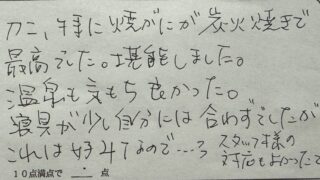 カニ、特に焼がにが炭火焼きで
最高でした。堪能しました。
温泉も気もち良かった。
寝具が少し自分には合わずでしたが
これは好みなので…。スタッフ様の
対応もよかったです
10点満点で . 点